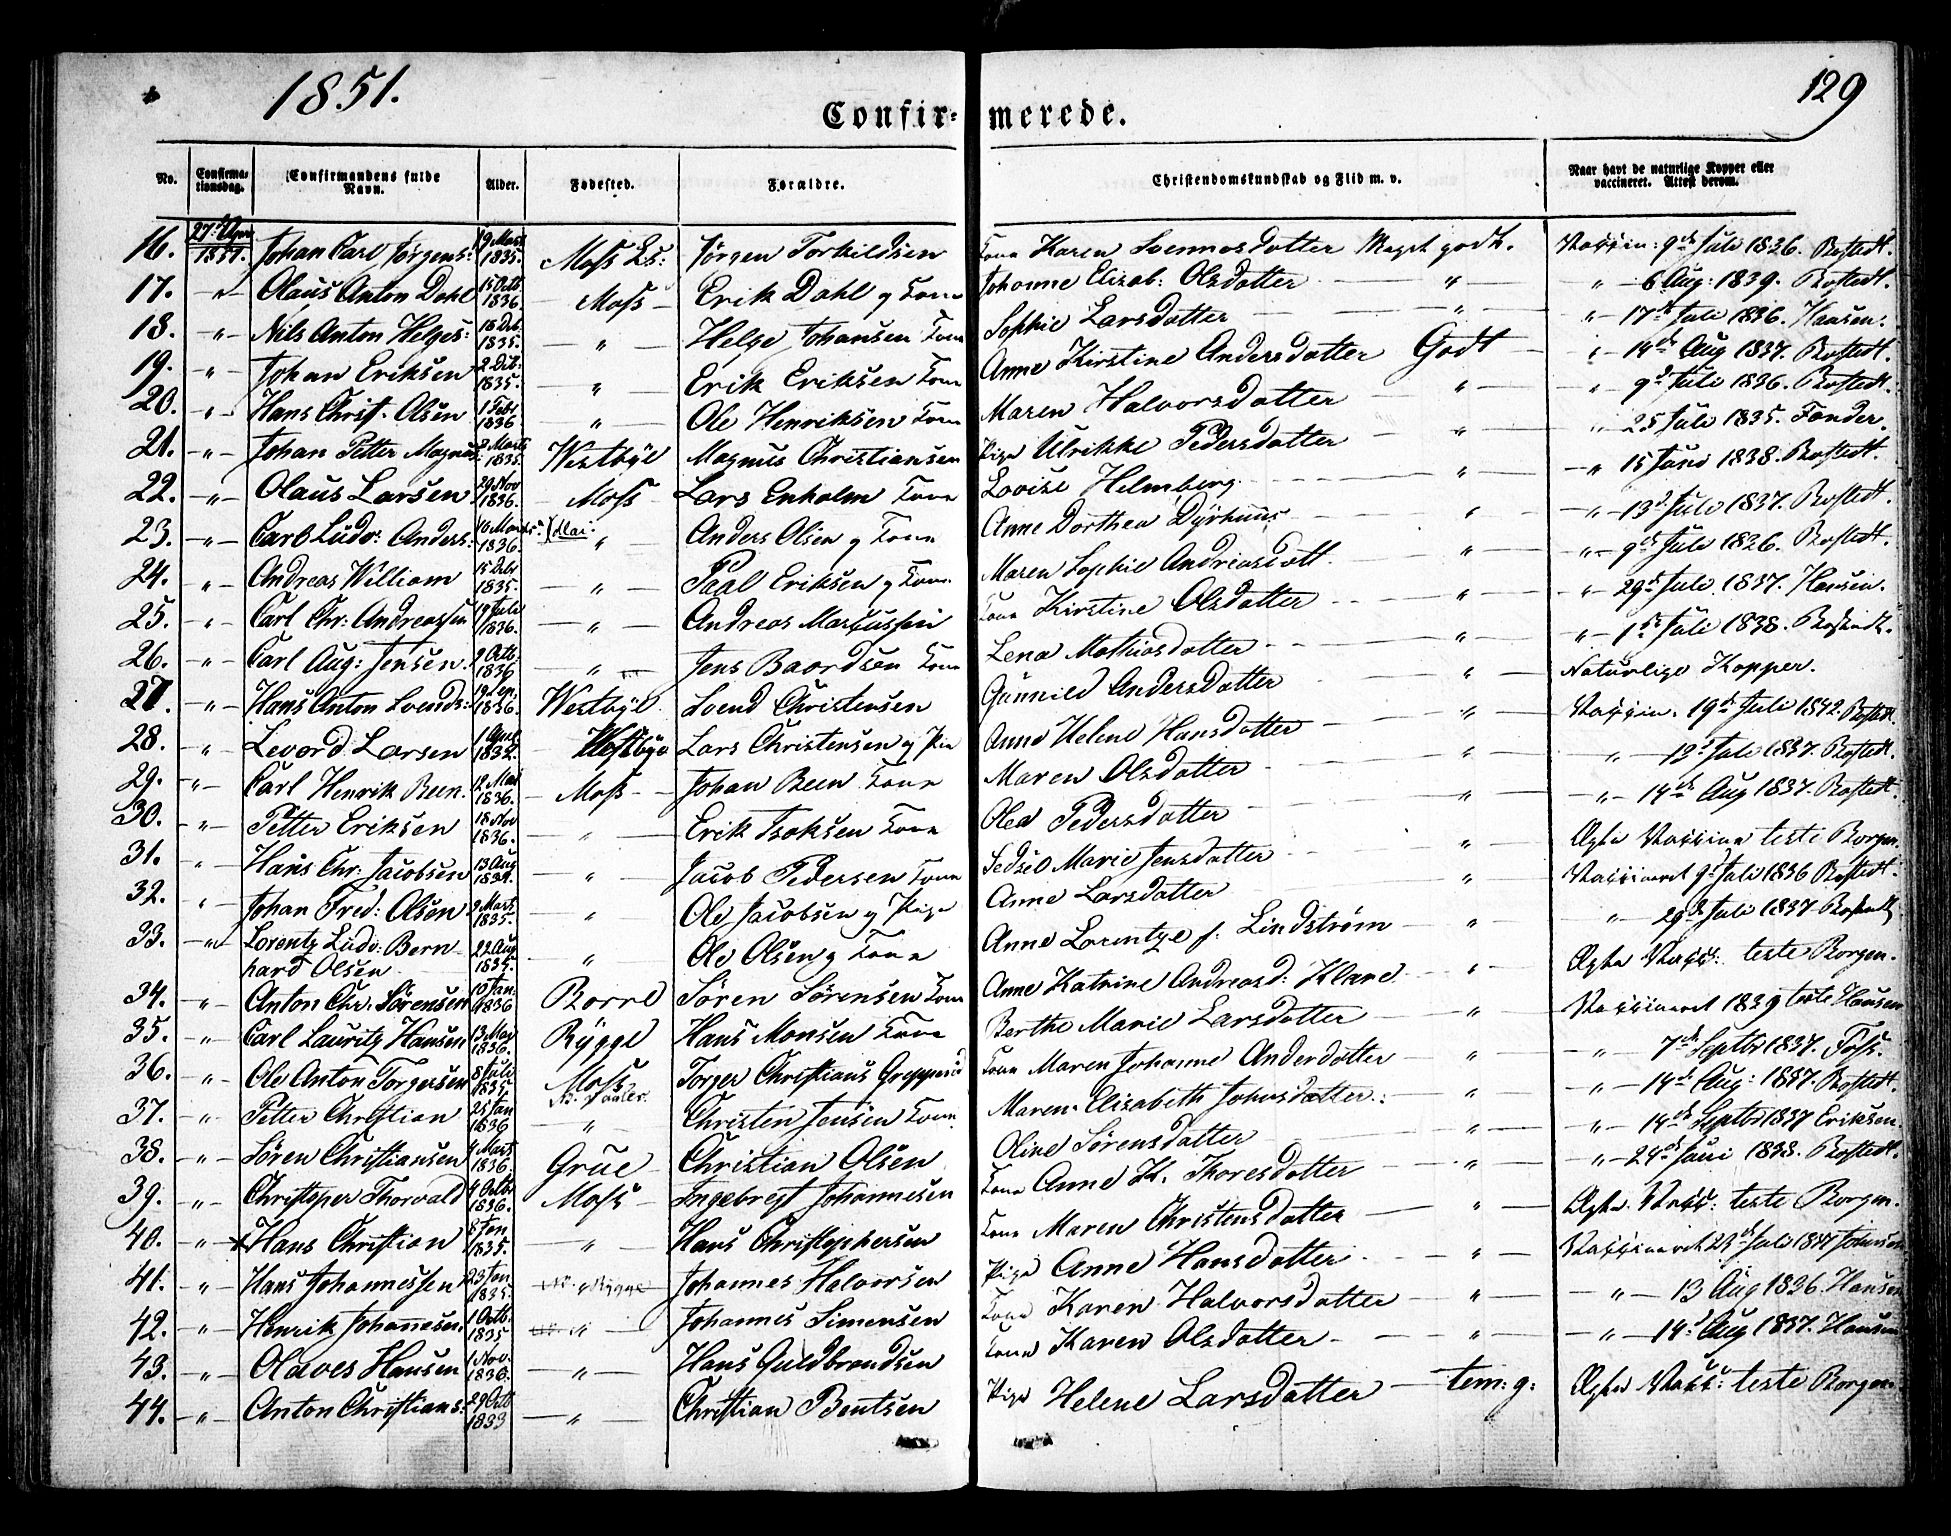 1851.
129
Confirmerede.
No. Confirmationsdag. Confirmandens fulde Navn. Alder. Fødested. Forældre. Christendomskundskab og Flid m. v. Naar havt de naturlige Kopper eller vaccineret. Attest derom.
16. 27. 1851. Johan Carl Jørgens: 9 Mart 1835. Moss Ls: Jørgen Torkildsen Kone Karen Svennosdatter Meget godt. Vaccin: 9de Juli 1836. Bostedt.
17. -"- Olaus Anton Dahl 15 Octb 1836 Moss Erik Dahl og Kone Johanne Elisab: Olsdatter " " 6 Aug: 1839. Bostedt.
18. -"- Nils Anton Helges: 18 Deb. 1835. " Helge Johansen Kone Sophie Larsdatter " " 17de Juli 1836. Hansen.
19. " Johan Eriksen 2 Deb: 1835. " Erik Eriksen Kone Anne Kirstine Andersdatter Godt " 14de Aug 1837. Bostedt.
20. -"- Hans Christ. Olsen 1 Feb 1836 " Ole Henriksen Kone Maren Halvorsdatter " " 9de Juli 1836. Bostedt.
21. -"- Johan Petter Magnus: 2 Mart 1835. Westbye Magnus Christiansen Pige Ulrikke Pedersdatter " " 25 Juli 1835. Fønder.
22. -"- Olaus Larsen 29 Nov 1836. Moss Lars Enholm Kone Lovise Helmberg " " 15 Juni 1838. Bostedt.
23. -"- Carl Ludv: Anders: 1836. (Mai: " Anders Olsen og Kone Anne Dorthea Dyrhuus " " 13de Juli 1837. Bostedt.
24. " Andreas William 15 Debr 1835. " Paal Eriksen og Kone Maren Sophie Andreasdatt " " 9de Juli 1836. Bostedt.
25. -"- Carl Chr: Andreassen 19 Juli 1836. " Andreas Marcussen Kone Kirstine Olsdatter " " 29de Juli 1837. Hansen.
26. -"- Carl Aug: Jensen. 9 Octb. 1836 " Jens Baardsen Kone Lena Mathiasdatter " " 1ste Juli 1838. Bostedt.
27. -"- Hans Anton Svends: 19 Sep. 1836. Westbye Svend Christensen Gunnild Andersdatter " Naturlige Kopper.
28. " Levord Larsen 1834. Westbye Lars Christensen og Pie Anne Helene Hansdatter " Vaccin. 19de Juli 1842. Bostedt
29. -"- Carl Henrik Been. 12 Mai 1836. Moss Johan Been Kone Maren Olsdatter " " 12de Juli 1837. Bostedt.
30. -"- Petter Eriksen 18 Nov 1836. " Erik Isaksen Kone Olea Pedersdatter " " 14de Aug 1837. Bostedt.
31. " Hans Chr: Jacobsen 13 Aug 1834. " Jacob Pedersen Kone Sedsel Marie Jensdatter " Ægte Vaccine teste Borgen.
32. " Johan Fred: Olsen 9 Mart. 1835. " Ole Jacobsen og Pige Anne Larsdatter " Vaccineret 9de Juli 1836 Bostedt.
33. -"- Lorentz Ludv: Bernhard Olsen 22 Aug 1835. " Ole Olsen og Kone Anne Lorentze f. Lindstrøm " " 29de Juli 1837 Bostedt
34. " Anton Chr. Sørensen 10 Jan. 1836 Borre Søren Sørensen Kone Anne Katrine Andreasd: Kland " Ægte Vacc: teste Borgen.
35. " Carl Lauritz Hansen 13 May 1836. Rygge Hans Monsen Kone Berthe Marie Larsdatter " Vaccineret 1839 teste Hansen
36. " Ole Anton Torgersen 8 Juli 1835 Moss Torger Christians Kone Maren Johanne Anderdatter " " 7de Septbr 1837. Foss.
37. " Petter Christian 25 Jan 1836 " Christen Jensen Kone Maren Elizabeth Johnsdatter: " " 14de Aug: 1837. Bostedt.
38. -"- Søren Christiansen 4 Mart 1836. Grue Christian Olsen Oline Sørensdatter " " 14de Septbr 1837 Eriksen.
39. " Christoper Thorvald 4 Octbr 1836. Moss Ingebregt Johannesen Kone Anne K. Thoresdatter " " 24de Juni 1838. Bostedt.
40. -"- Hans Christian 8 Jan 1835. " Hans Christophersen Kone Maren Christensdatter " Ægte Vacc: teste Borgen.
41. -"- Hans Johannessen 23 Jan. 1835. Rygge Johannes Halvorsen Pige Anne Hansdatter " Vaccineret 23de Juli 1837 Johnsen
42. -"- Henrik Johannesen. 1 Octb. 1835 " Johannes Simensen Kone Karen Halvorsdatter " " 13 Aug 1836. Hansen
43. -"- Olaves Hansen 1 Nov. 1836. " Hans Guldbrandsen Kone Karen Olsdatter " " 14de Aug 1837. Hansen
44. -"- Anton Christians: 29 Octb 1833 " Christian Bentsen Pige Helene Larsdatter tem: g: Ægte Vacc: teste Borgen